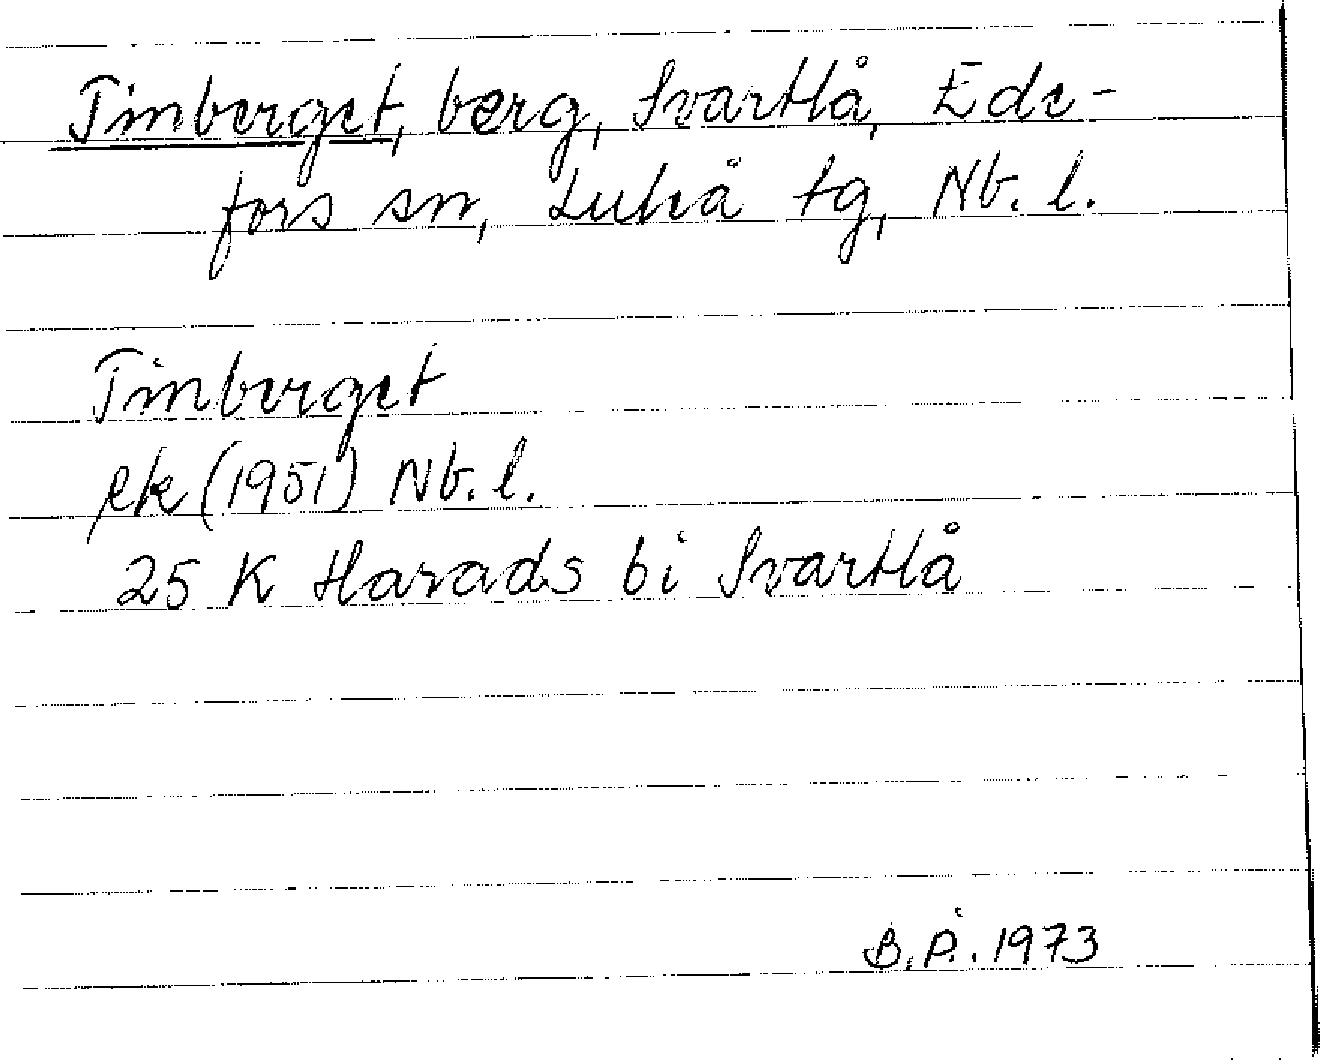 Timberget, berg, Svartlå, Ede-
fors sn, Luleå tg, Nb. l.
Timberget
ek (1951) Nb. l.
25 K Harads bi Svartlå
B. P. 1973